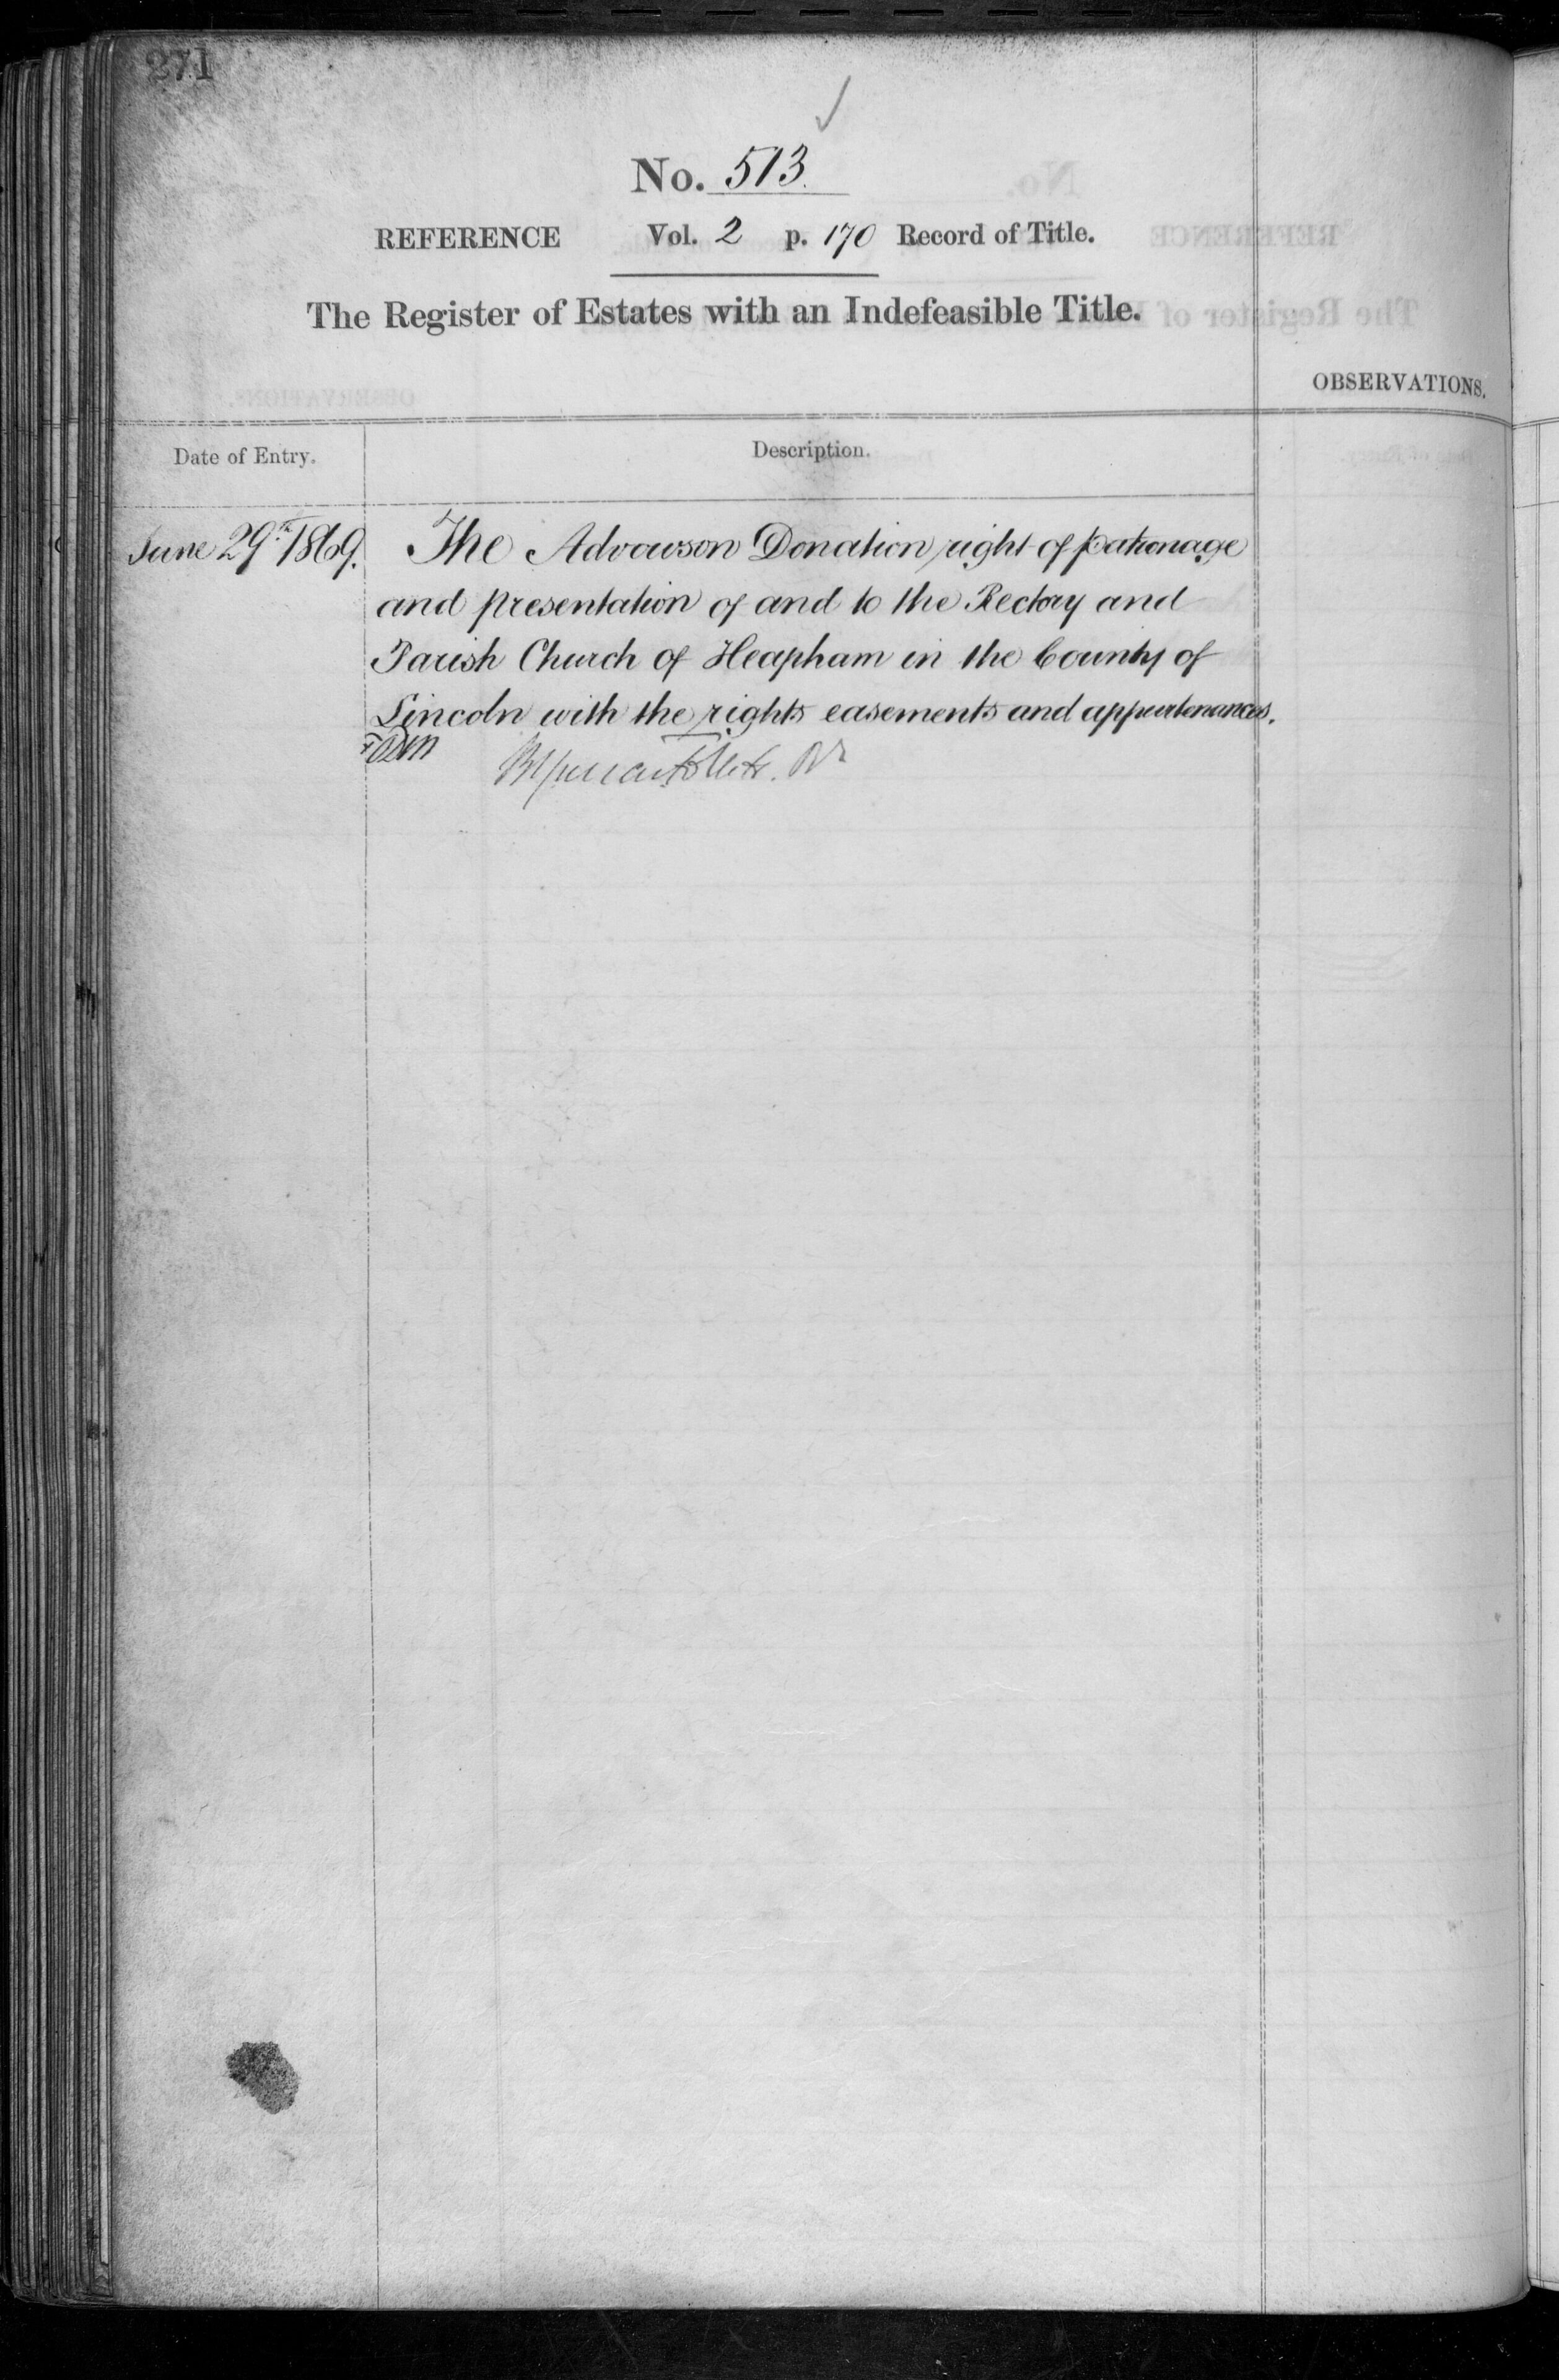 271
No. 513.
REFERENCE Vol. 2 p. 170 Record of Title.
The Register of Estates with an Indefeasible Title.
OBSERVATIONS.
Date of Entry. Description.
June 29th 1869. The Advowson Donation right of patronage
and presentation of and to the Rectory and
Parish Church of Heapham in the County of
Lincoln with the rights easements and appurtenances.